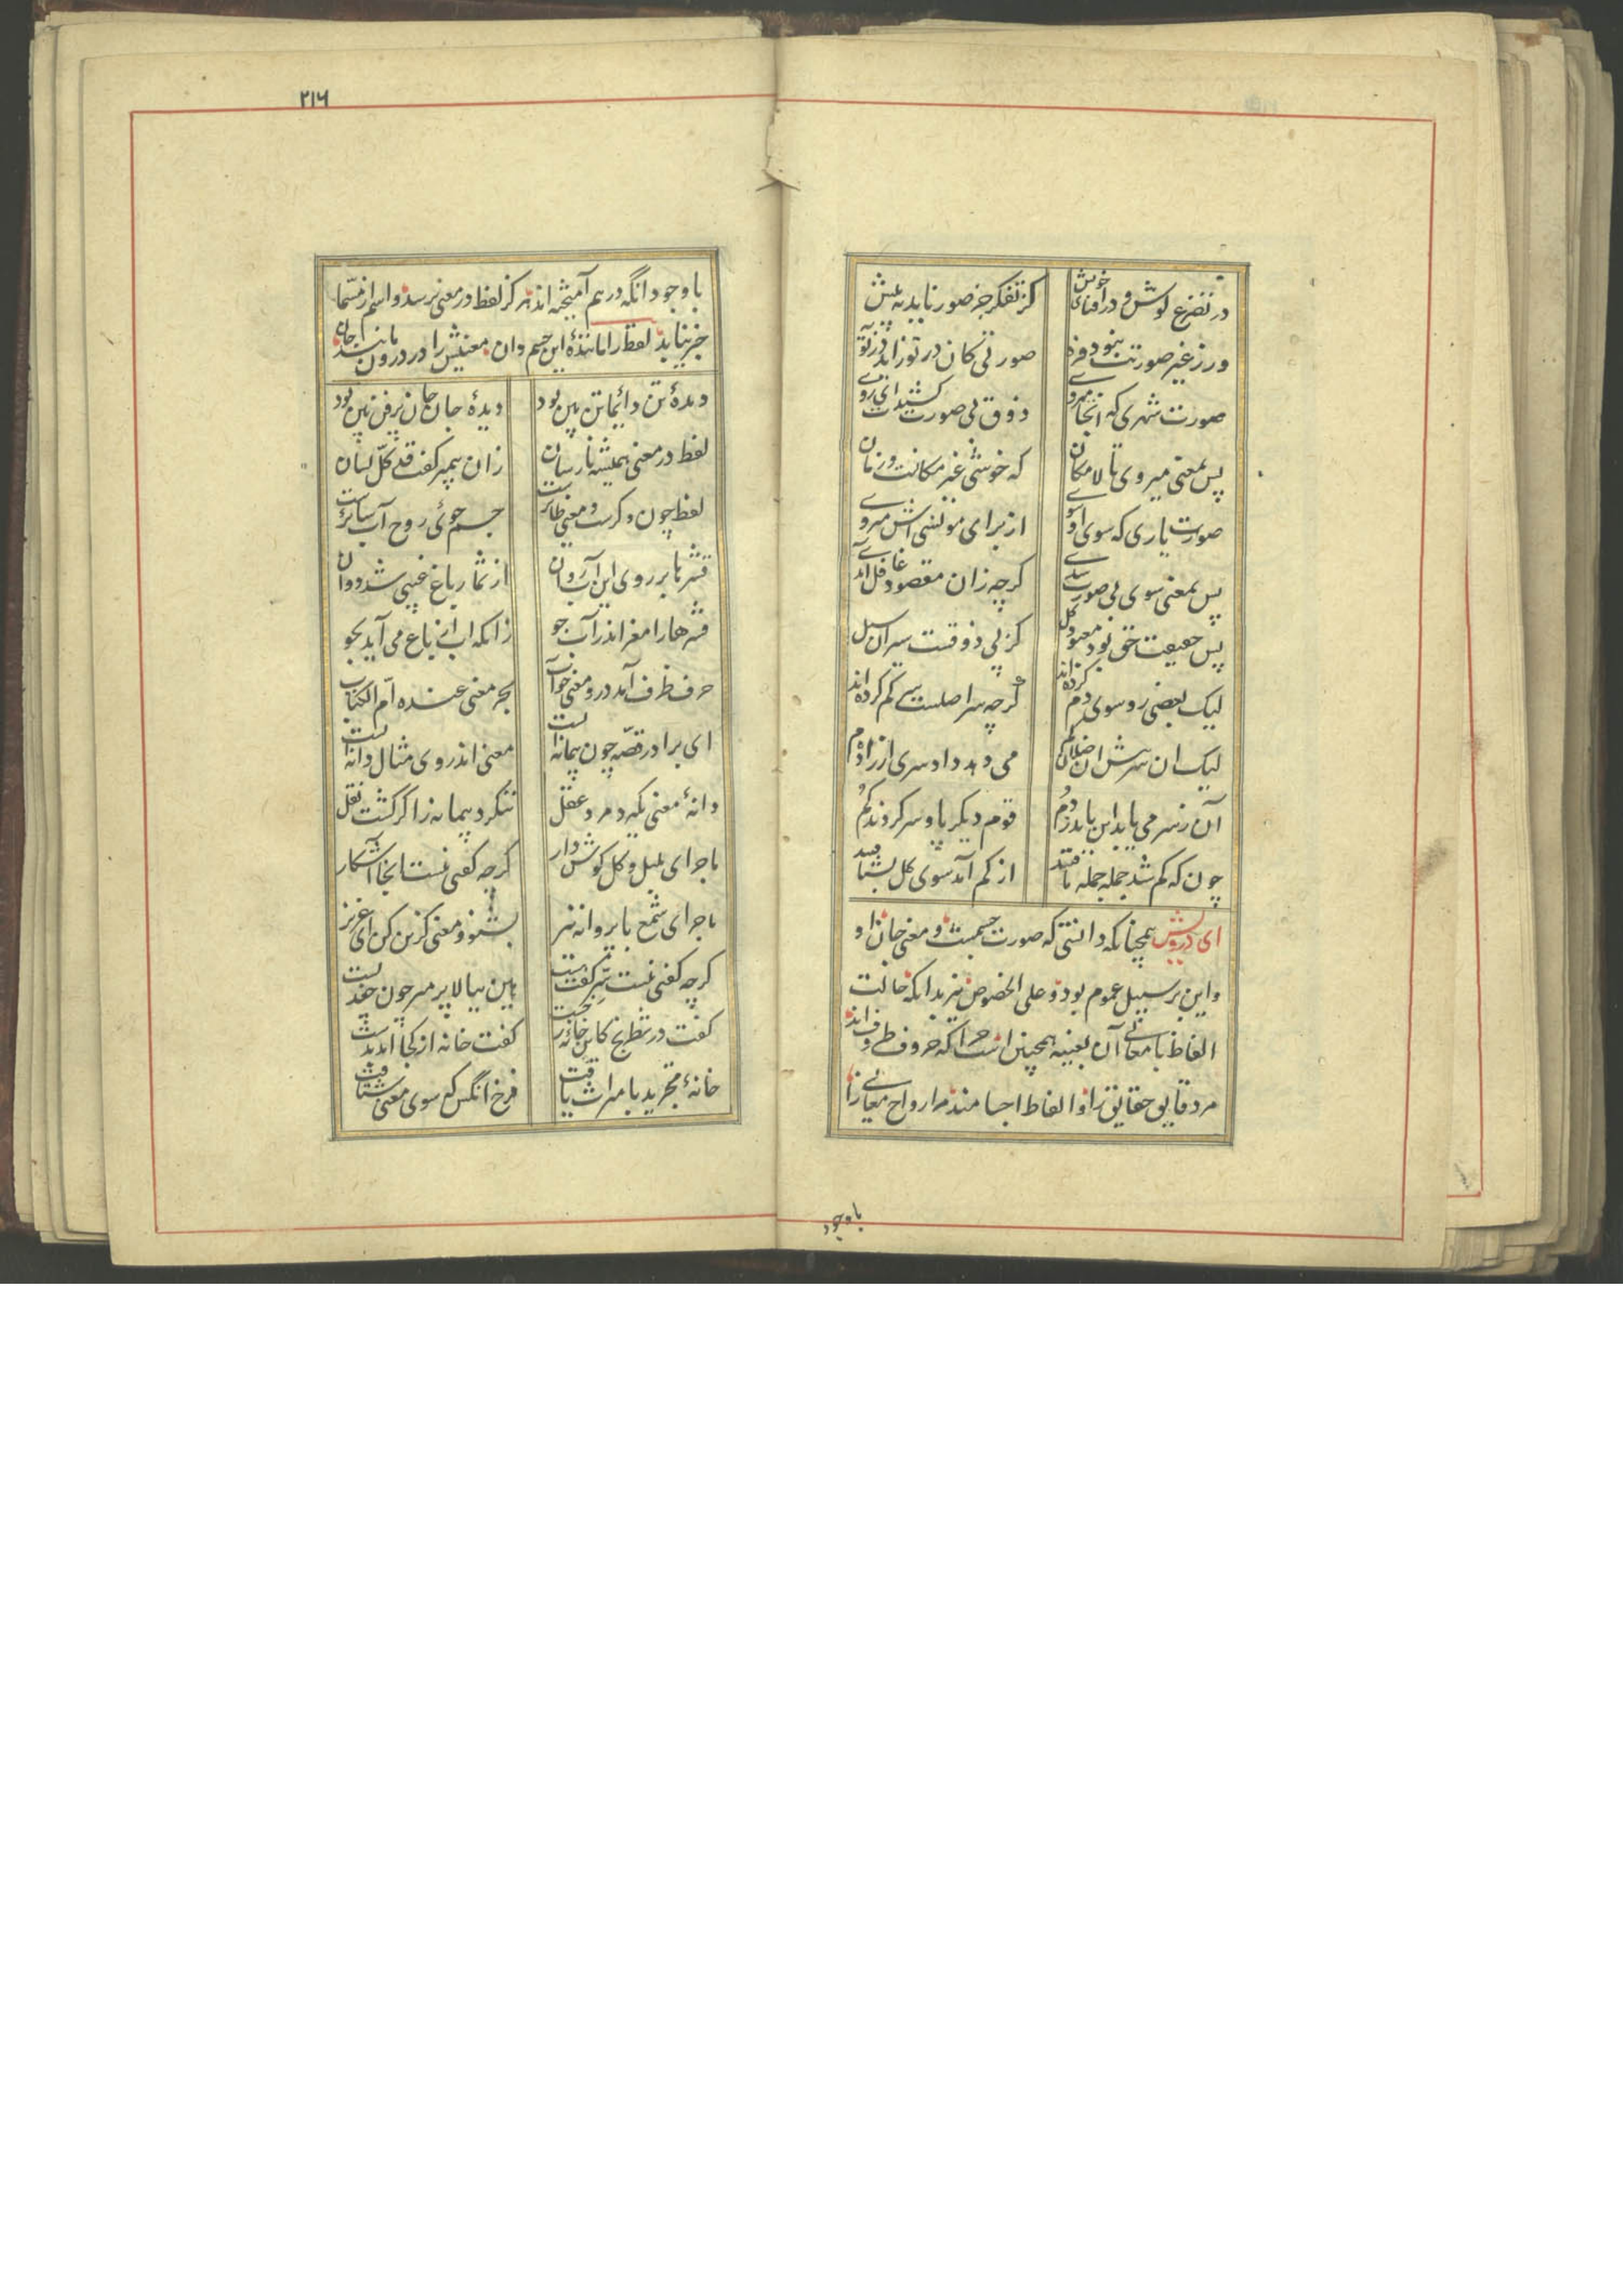 در تضرع کوش و در افنای خویش
کز تفکر جز صور ناید به پیش
ور ز غیر صورتت نبود فره
صورتی کان در تو زاید در تو به
صورت شهری که آنجا میروی
ذوق بی صورت کشیدت ای روی
پس بمعنی میروی تا لامکان
که خوشی غیر مکانست و زمان
صورت یاری که سوی او شوی
از برای مونسی اش میروی
پس بمعنی سوی بی صورت شدی
گرچه زان مقصود غافل آمدی
پس حقیقت حق بود معبود کل
کز پی ذوقست سیران سبل
لیک بعضی رو سوی دم کرده‌اند
گرچه سر اصلست سر گم کرده‌اند
لیک آن سر پیش این ضالان گم
می دهد داد سری از راه دم
آن ز سر می یابد این یابد ز دم
قوم دیگر پا و سر کردند گم
چون که گم شد جمله جمله یافتند
از کم آمد سوی کل بشتافتند
ای درویش همچنانکه دانستی که صورت جسمیست و معنی جان او
و این بر سبیل عموم بود و علی الخصوص نیز بدانکه حالت
الفاظ با معانی آن بعینه همچنین است چرا که حروف ظروف‌اند
مر دقایق حقایق را و الفاظ اجسامند مر ارواح معانی را
باوجود
۲۱۶
با وجود آنکه در هم آمیخته‌اند هرگز لفظ در معنی نرسد و اسم از مسما
خبر نیابد لفظ را ماننده این جسم دان معنیش را در درون مانند جان
دیده تن دائما تن بین بود
دیده جان جان پر فن بین بود
لفظ در معنی همیشه نارسان
زان پیمبر گفت قد کل لسان
لفظ چون وکرست و معنی طائرست
جسم جوی و روح آب سائرست
قشرها بر روی این آب روان
از ثمار باغ غیبی شد دوان
قشرها را مغز اندر آب جو
زانکه آب از باغ می آید بجو
حرف ظرف آمد درو معنی چو آب
بحر معنی عنده ام الکتاب
ای برادر قصه چون پیمانه است
معنی اندر وی مثال دانه است
دانه معنی بگیرد مرد عقل
ننگرد پیمانه را گر گشت نقل
ماجرای بلبل و گل گوش دار
گرچه گفتی نیست اینجا آشکار
ماجرای شمع با پروانه نیز
بشنو و معنی گزین کن ای عزیز
گرچه گفتی نیست سر گفت هست
هین ببالا پر مپر چون جغد پست
گفت در شطرنج کاین خانه رخست
گفت خانه از کجا آمد بدست
خانه بخرید یا میراث یافت
فرخ آنکس که سوی معنی شتافت